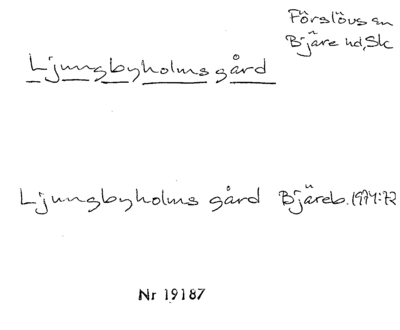 Förslövs sn
Bjäre hd, Sk
Ljungbyholms gård
Ljungbyholms gård Bjäreb. 1974:72
Nr 19187